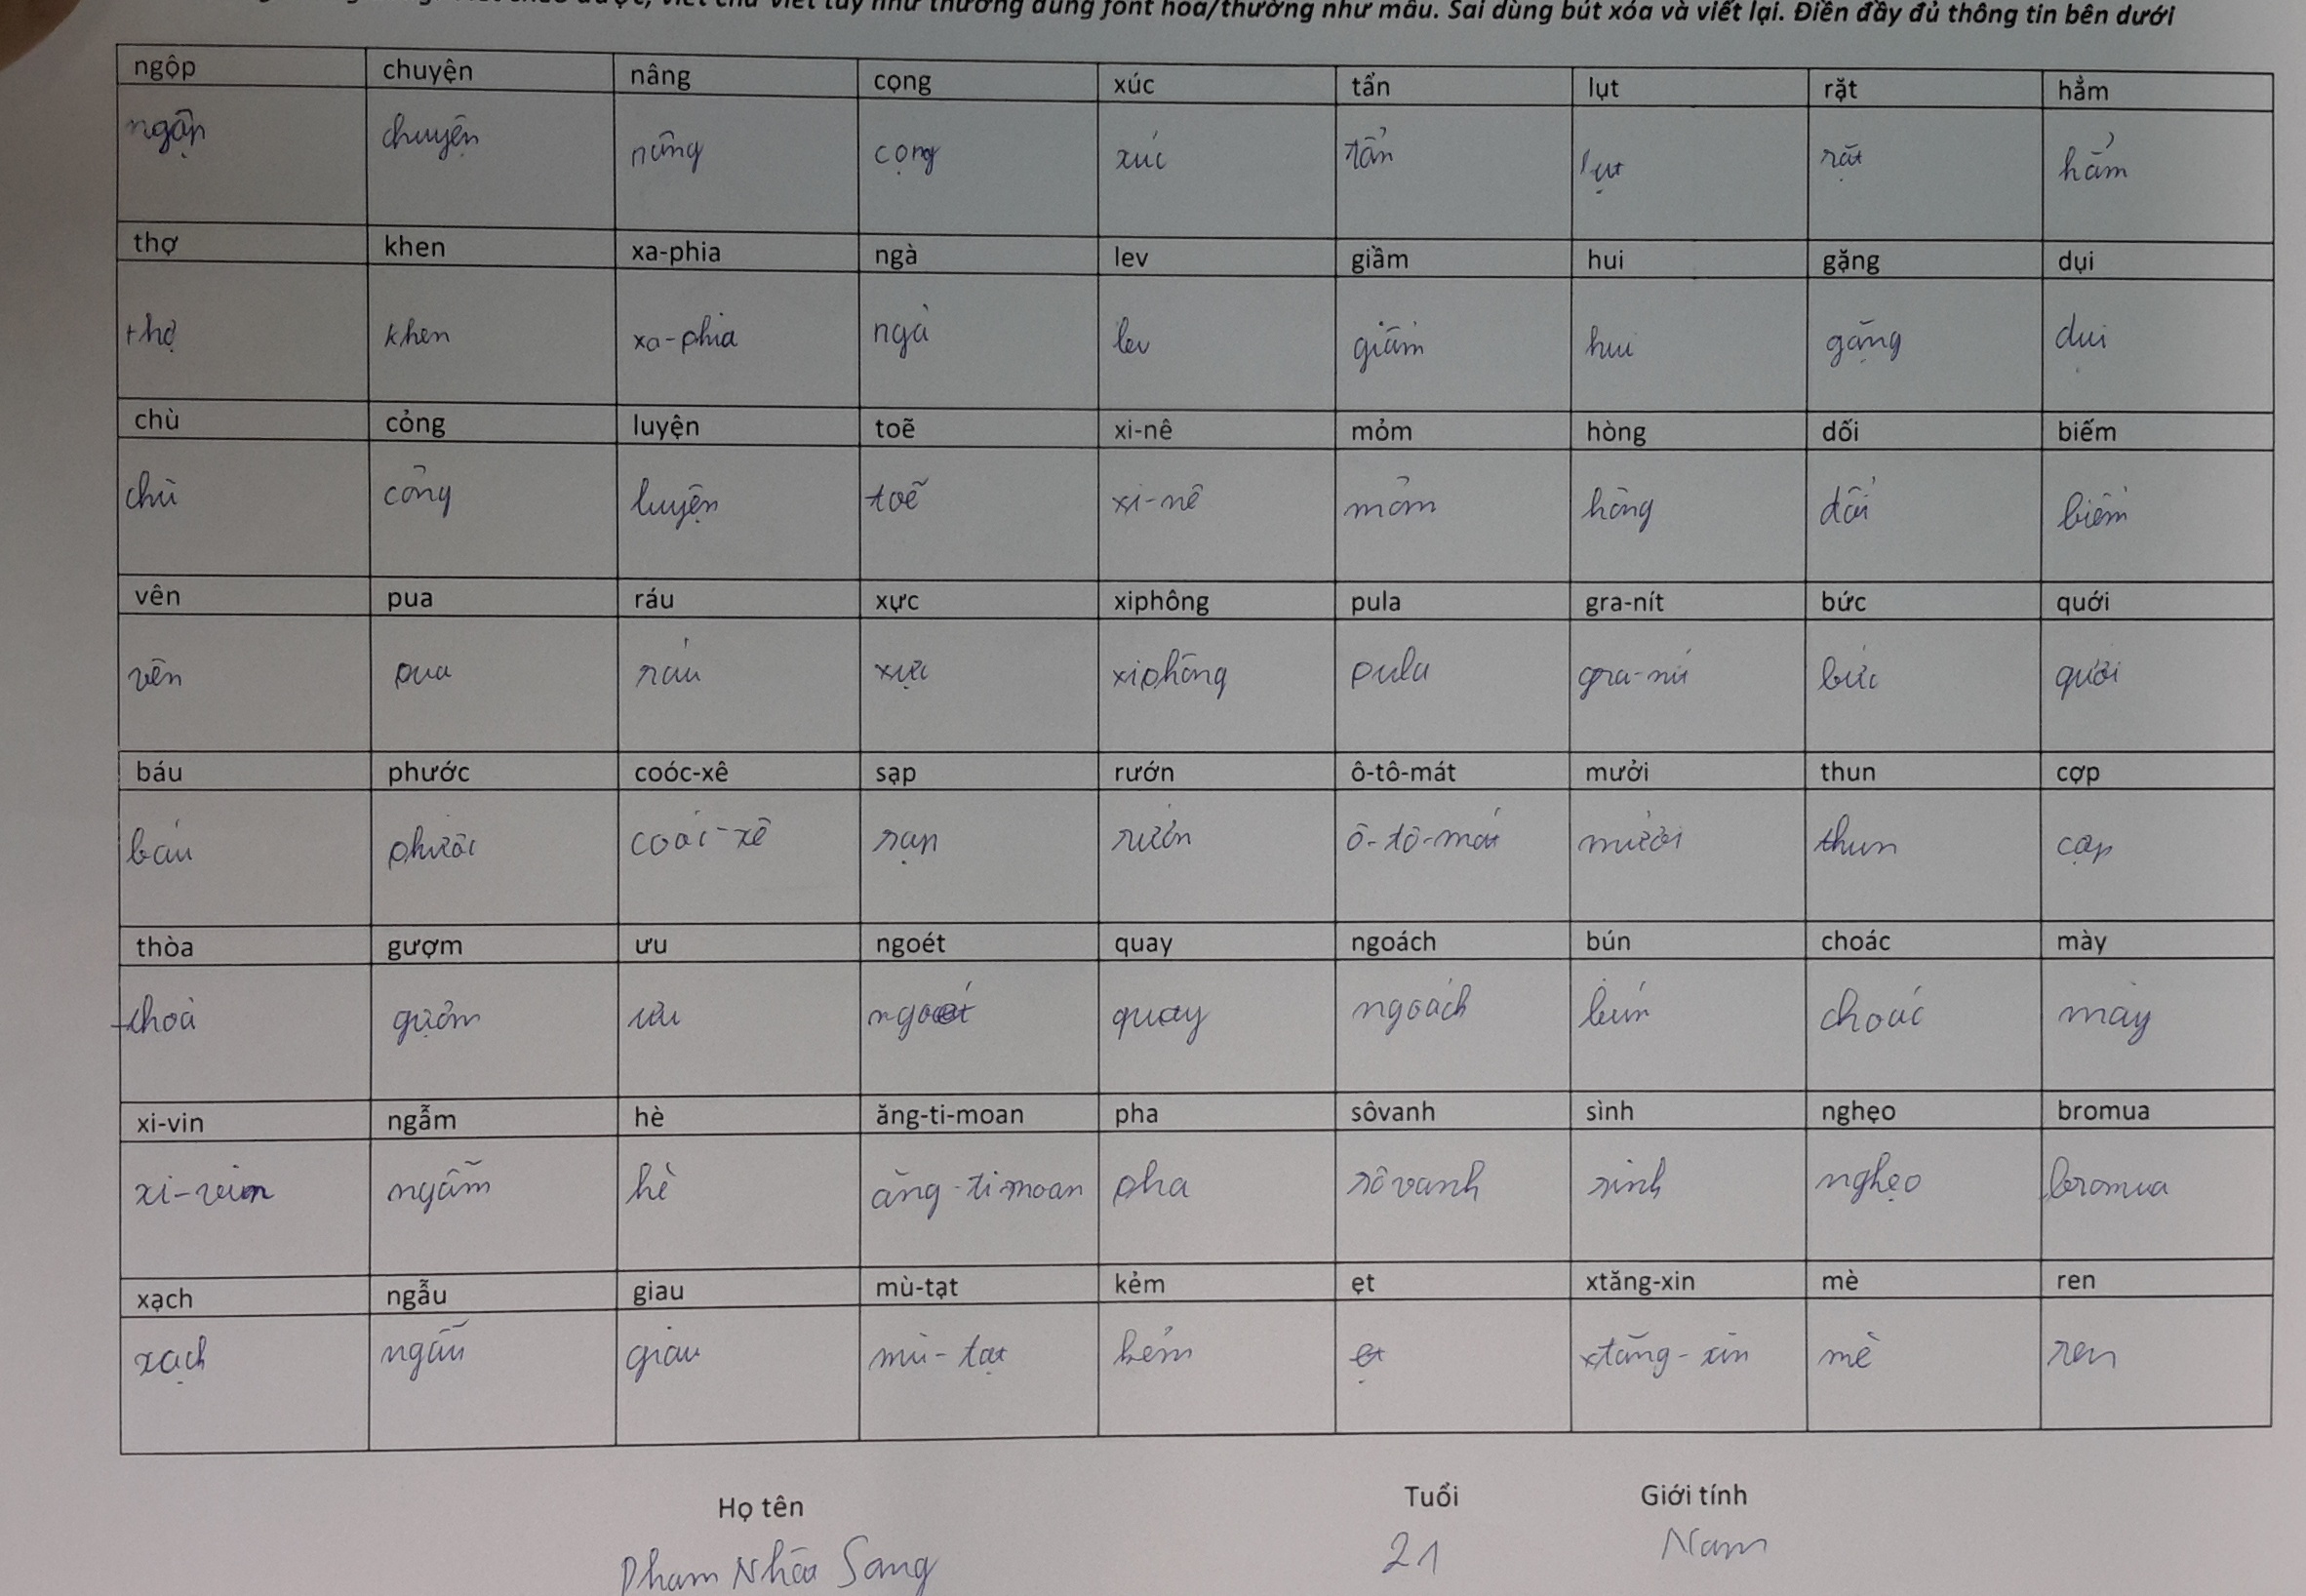 viết chữ viết tay như thường dùng font hoa/thường như mẫu. Sai dùng bút xóa và viết lại. Điền đầy đủ thông tin bên dưới
ngộp chuyện nâng cọng xúc tẩn lụt rặt hẳm
ngộp chuyện nâng cọng xúc tẩn lụt rặt hẳm
thợ khen xa-phia ngà lev giầm hui gặng dụi
thợ khen xa-phia ngà lev giầm hui gặng dụi
chù cỏng luyện toẽ xi-nê mỏm hòng dối biếm
chù cỏng luyện toẽ xi-nê mỏm hòng dối biếm
vên pua ráu xực xiphông pula gra-nít bức quới
vên pua ráu xực xiphông pula gra-nít bức quới
báu phước coóc-xê sạp rướn ô-tô-mát mưởi thun cợp
báu phước coóc-xê sạp rướn ô-tô-mát mưởi thun cợp
thòa gượm ưu ngoét quay ngoách bún choác mày
thoà gượm ưu ngoét quay ngoách bún choác mày
xi-vin ngẫm hè ăng-ti-moan pha sôvanh sình nghẹo bromua
xi-vin ngẫm hè ăng-ti-moan pha sôvanh sình nghẹo bromua
xạch ngẫu giau mù-tạt kẻm ẹt xtăng-xin mè ren
xạch ngẫu giau mù-tạt kẻm ẹt xtăng-xin mè ren
Họ tên Tuổi Giới tính
Phạm Sang 21 Nam